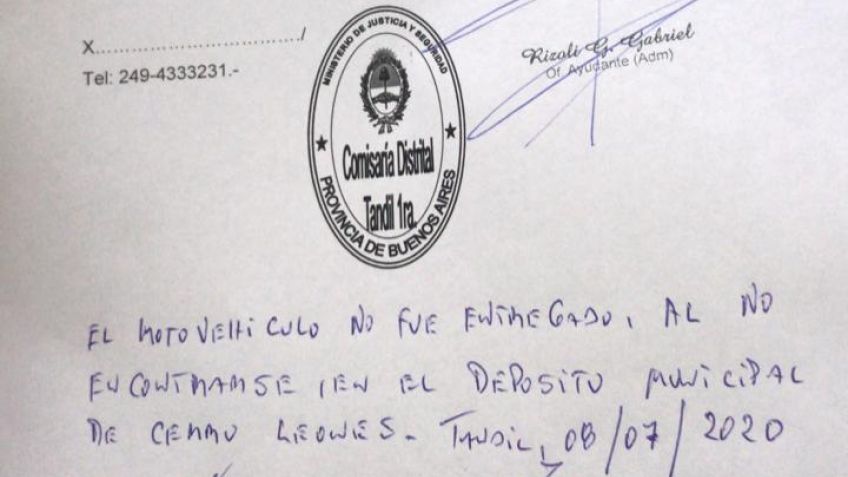 X................................/
Tel: 249-4333231.-
MINISTERIO DE JUSTICIA Y SEGURIDAD
Comisaría Distrital
Tandil 1ra.
PROVINCIA DE BUENOS AIRES
Rizoli G. Gabriel
Of. Ayudante (Adm)
EL MOTOVEHICULO NO FUE ENTREGADO, AL NO
ENCONTRARSE, EN EL DEPOSITO MUNICIPAL
DE CERRO LEONES. TANDIL, 08/07/2020